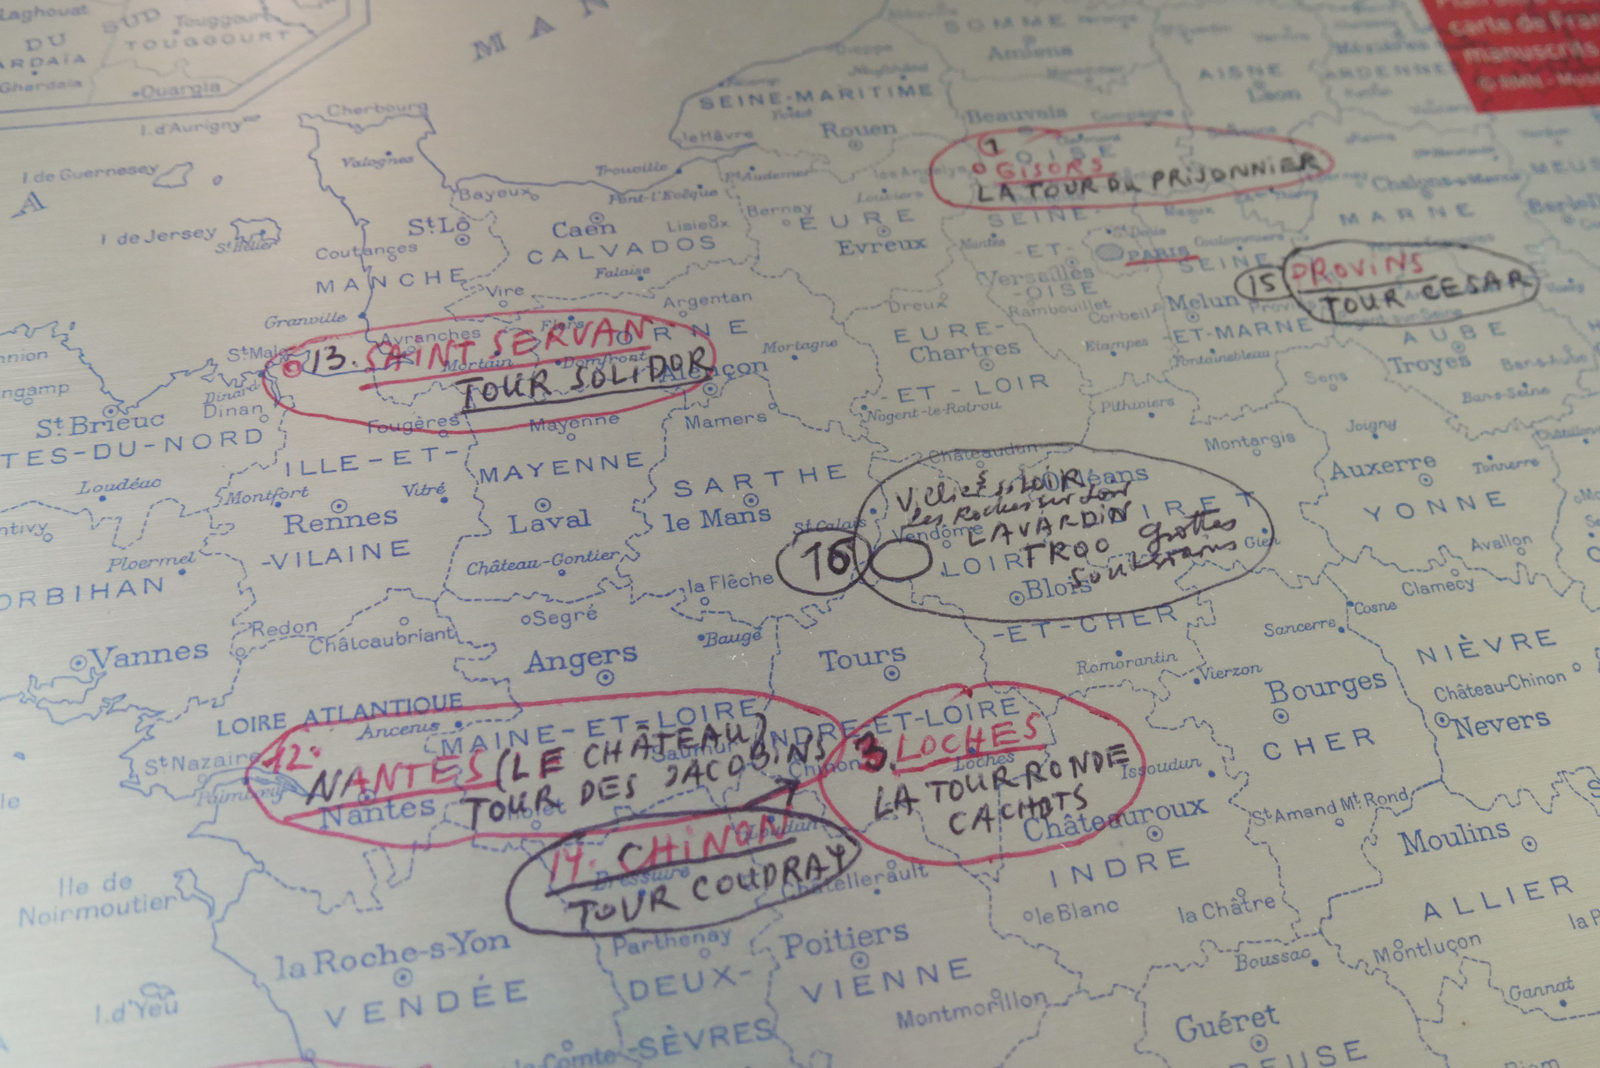 Laghouat
SUD
Touggourt
DU
TOUGGOURT
Ghardaia
Ouargla
MAN
SOMME
Amiens
AISNE
Laon
ARDENNES
carte de Fran
manuscrits
Cherbourg
I. d'Aurigny
I de Guernesey
Valognes
A
I de Jersey
St Hélier
Bayeux
St Lô
Coutances
MANCHE
Granville
Vire
Caen
CALVADOS
Falaise
Trouville
Pont-l'Evêque
Lisieux
le Hâvre
SEINE-MARITIME
Rouen
Pt Audemer
Bernay
Louviers
EURE
Evreux
Argentan
Beauvais
1
OISE
GISORS
LA TOUR DU PRISONNIER
SEINE-
ET-
Mantes
Versailles
-OISE
Rambouillet
St Denis
Meaux
PARIS
Coulommiers
SEINE
Corbeil
Melun
Provins
-ET-MARNE
Fontainebleau
Etampes
MARNE
MEUS
15
PROVINS
TOUR CESAR
AUBE
Troyes
Bar-s-Seine
Sens
Dreux
EURE-
Chartres
-ET-LOIR
Nogent-le-Rotrou
Pithiviers
Montargis
Joigny
Auxerre
Tonnerre
YONNE
Avallon
Clamecy
St Malo
Dinard
Dinan
13. SAINT SERVAN
TOUR SOLIDOR
Avranches
Mortain
Flers
Domfront
ORNE
Alençon
Mortagne
Mamers
Mayenne
Fougères
St Brieuc
TES-DU-NORD
Loudéac
ILLE-ET-
Montfort
Vitré
Rennes
-VILAINE
MAYENNE
Laval
Château-Gontier
SARTHE
le Mans
St Calais
la Flèche
Ploermel
ORBIHAN
Redon
Châteaubriant
Segré
Baugé
Vannes
Angers
Tours
Châteaudun
Orléans
Villiers s/Loir
Les Roches sur Loir
LAVARDIN
TROO grottes
souterrains
16
Vendôme
LOIRET
LOIR
Blois
-ET-CHER
Gien
Romorantin
Vierzon
Cosne
Sancerre
NIÈVRE
Château-Chinon
Nevers
Bourges
CHER
LOIRE ATLANTIQUE
Ancenis
St Nazaire
Paimbœuf
MAINE-ET-LOIRE
Saumur
12.
NANTES (LE CHÂTEAU)
TOUR DES JACOBINS
Nantes
Cholet
INDRE-ET-LOIRE
Chinon
3. LOCHES
Loches
LA TOUR RONDE
CACHOTS
Issoudun
Châteauroux
14. CHINON
TOUR COUDRAY
Bressuire
Loudun
Châtellerault
INDRE
le Blanc
la Châtre
St Amand Mt Rond
Moulins
ALLIER
Montluçon
Gannat
Boussac
Ile de
Noirmoutier
I. d'Yeu
la Roche-s-Yon
VENDÉE
Parthenay
DEUX-
-SÈVRES
Poitiers
VIENNE
Montmorillon
Guéret
EUSE